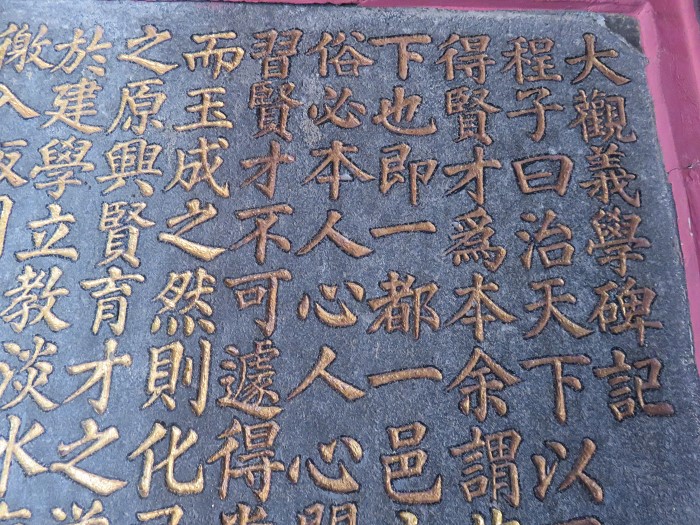 大觀義學碑記
程子曰治天下以
得賢才爲本余謂
下也即一都一邑
俗必本人心人心
習賢才不可遽得
而玉成之然則化
之原興賢育才之
於建學立教淡水
徼入版